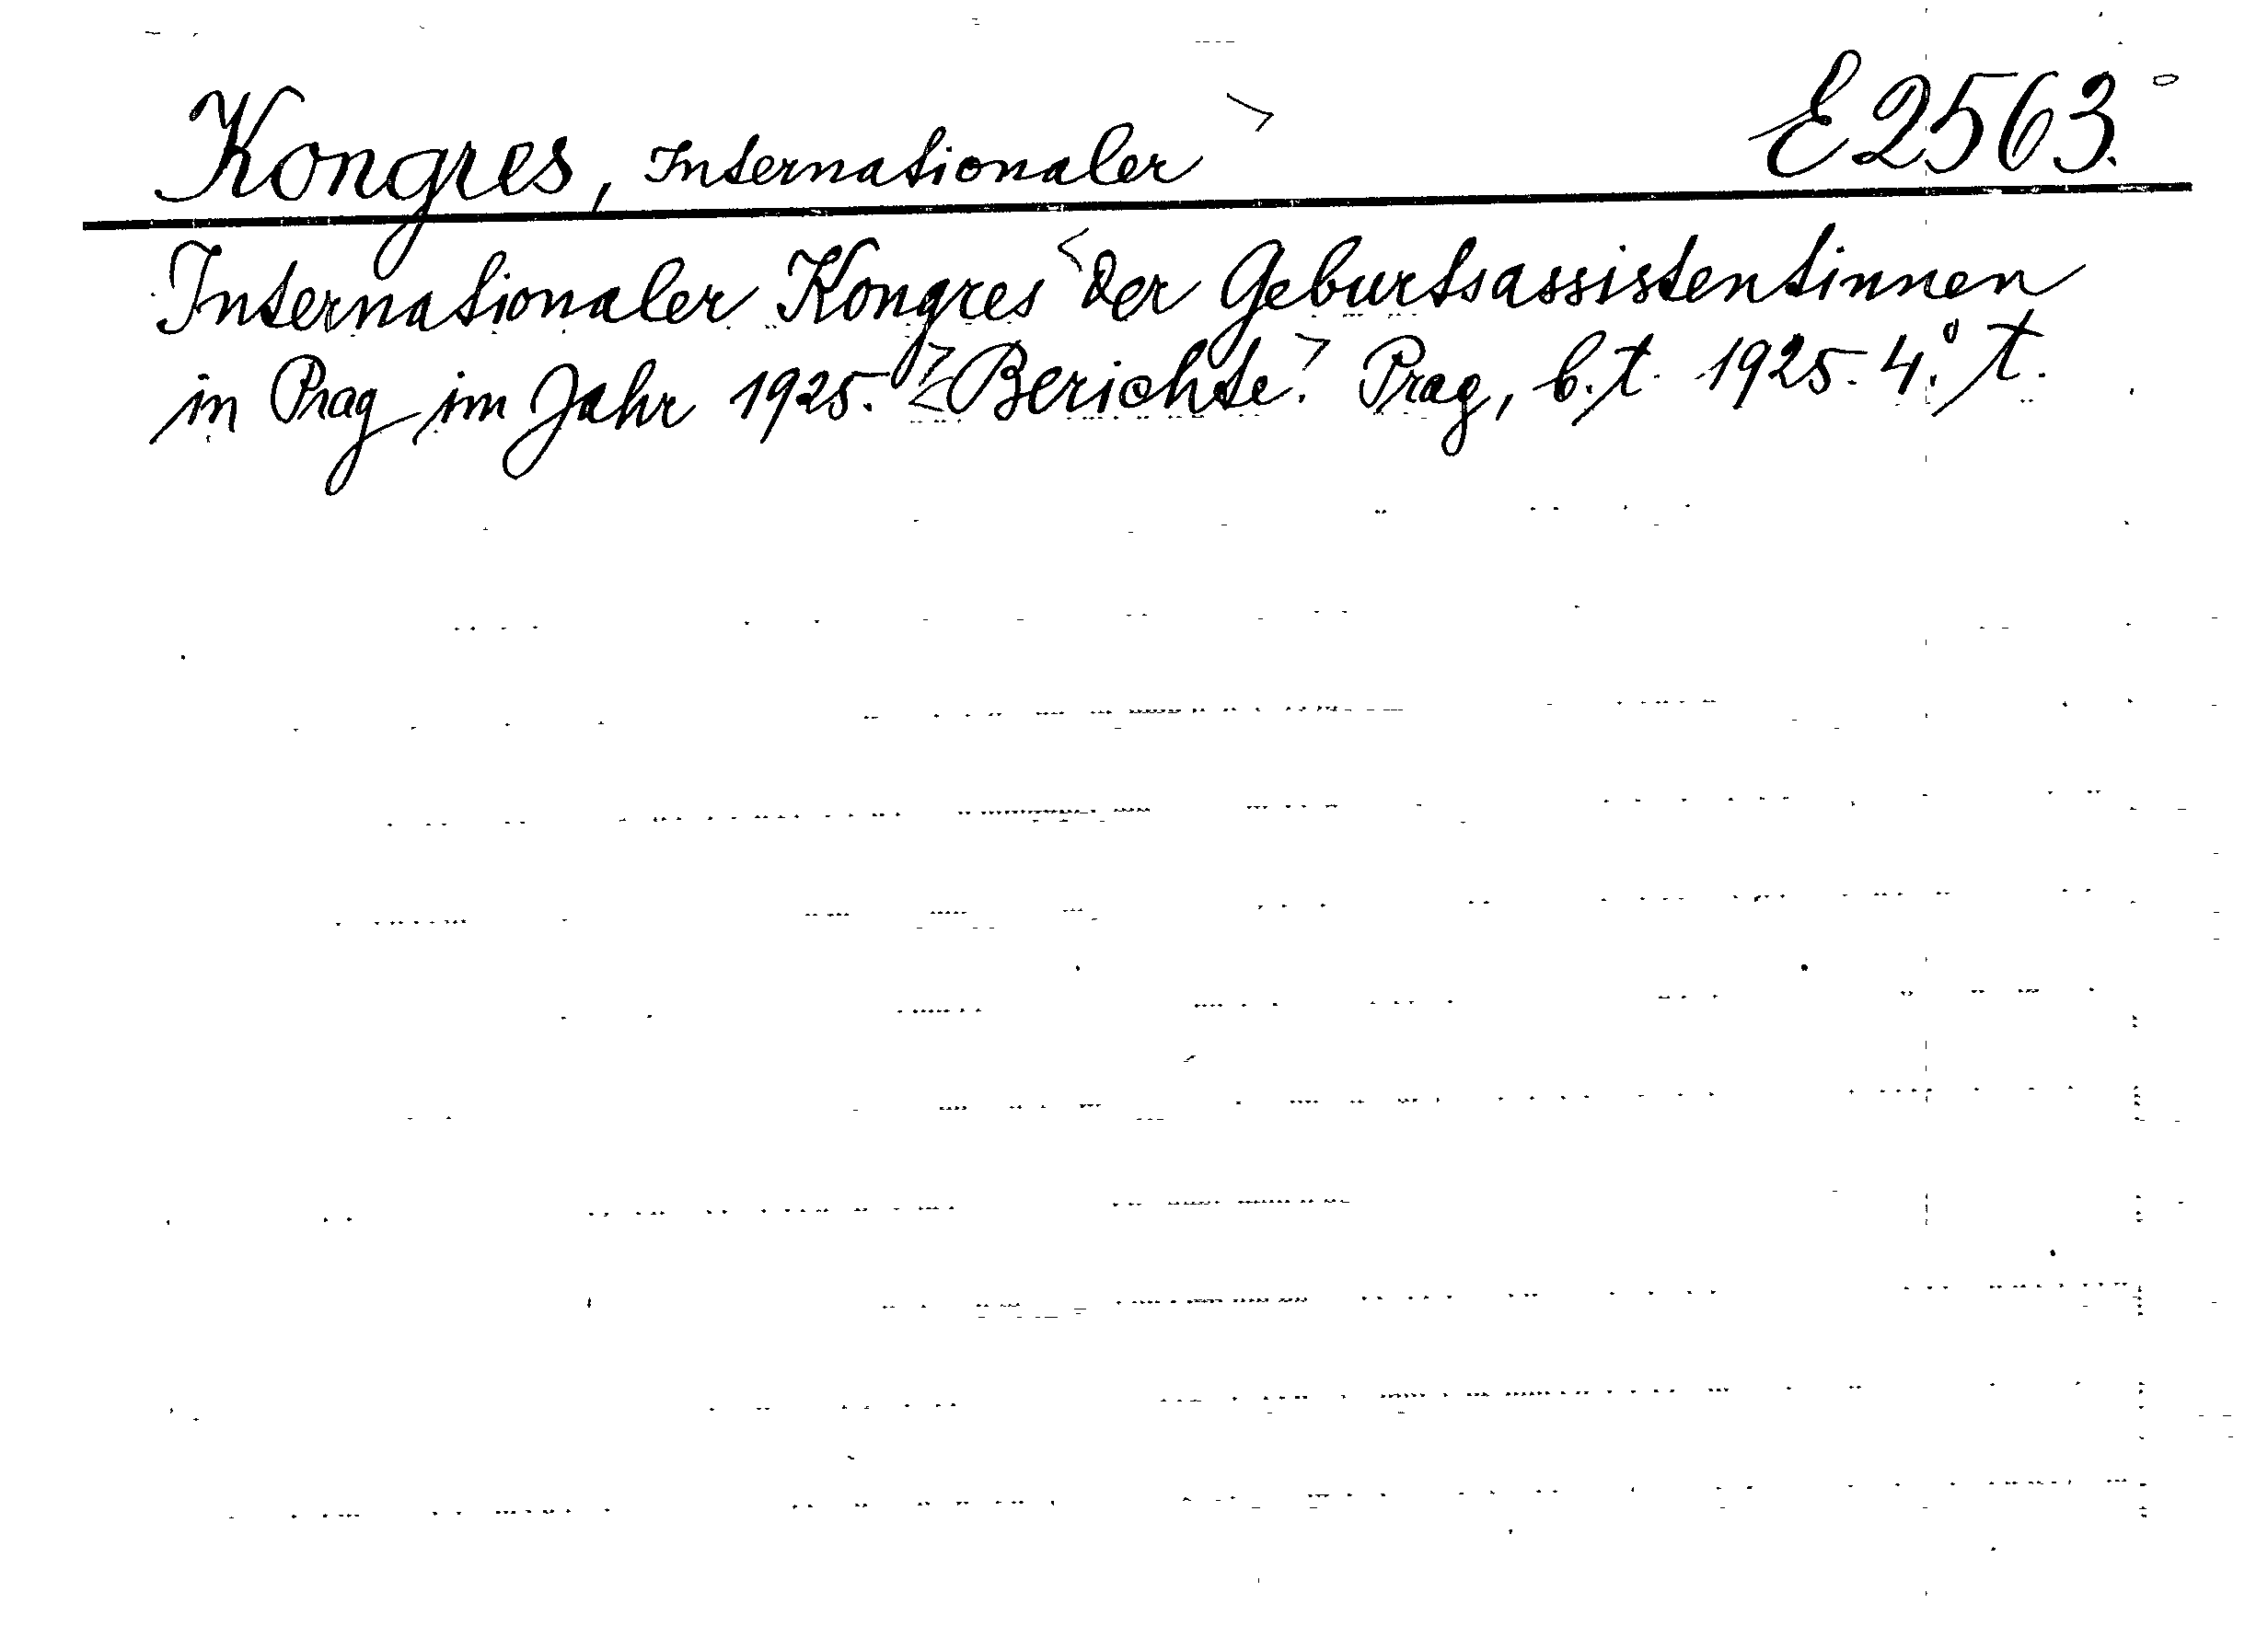 Kongres, Internationaler > E 2563.
Internationaler Kongres < der Geburtsassistentinnen
in Prag im Jahr 1925. > < Berichte. > Prag, b. t. 1925. 4.° T.